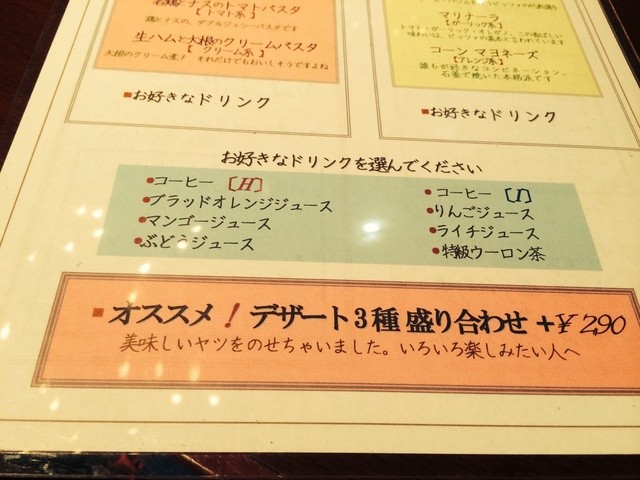 鶏とナスのトマトパスタ
【トマト系】
鶏とナスの、ダブルジューシーパスタです
生ハムと大根のクリームパスタ
【クリーム系】
大根のクリーム煮！ それだけでもおいしそうですよね
■お好きなドリンク
マリナーラ
【ガーリック系】
トマト・ガーリック・オレガノ、この香ばしい
味わいは、ピッツァの基本と言われています
コーン マヨネーズ
【アレンジ系】
誰もが好きなコンビネーション、
石釜で焼いた本格派です
■お好きなドリンク
お好きなドリンクを選んでください
●コーヒー 〔H〕
●ブラッドオレンジジュース
●マンゴージュース
●ぶどうジュース
●コーヒー 〔I〕
●りんごジュース
●ライチジュース
●特級ウーロン茶
■オススメ！デザート3種 盛り合わせ +¥290
美味しいヤツをのせちゃいました。いろいろ楽しみたい人へ